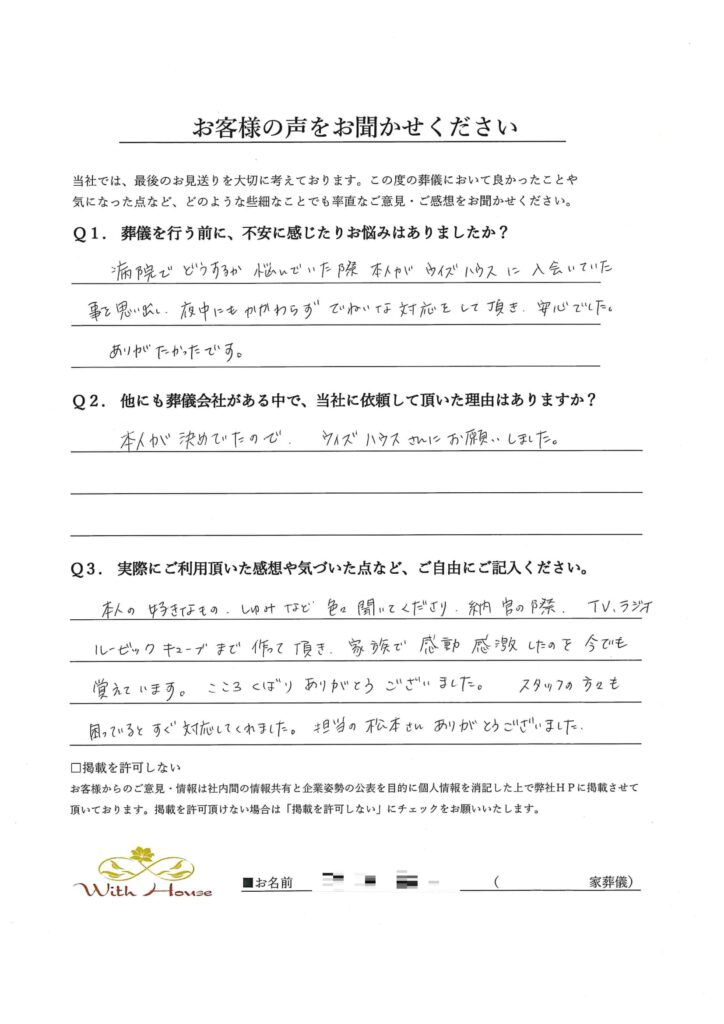 お客様の声をお聞かせください
当社では、最後のお見送りを大切に考えております。この度の葬儀において良かったことや
気になった点など、どのような些細なことでも率直なご意見・ご感想をお聞かせください。
Q1. 葬儀を行う前に、不安に感じたりお悩みはありましたか？
病院で どうするか 悩んでいた際 本人が ウイズハウスに 入会いていた
事を思い出し、夜中にもかかわらず でねいな 対応をして頂き、安心でした。
ありがたかったです。
Q2. 他にも葬儀会社がある中で、当社に依頼して頂いた理由はありますか？
本人が 決めてたので、 ウイズハウスさんにお願いしました。
Q3. 実際にご利用頂いた感想や気づいた点など、ご自由にご記入ください。
本人の 好きなもの、しゅみ など 色々 聞いてくださり、納官の際、 TV、ラジオ
ルービックキューブまで 作って 頂き、家族で 感動 感激したのを 今でも
覚えています。 こころくばり ありがとうございました。 スタッフの方々も
困っていると すぐ対応してくれました。担当の 松本さん ありがとうございました。
□掲載を許可しない
お客様からのご意見・情報は社内間の情報共有と企業姿勢の公表を目的に個人情報を消記した上で弊社HPに掲載させて
頂いております。掲載を許可頂けない場合は「掲載を許可しない」にチェックをお願いいたします。
With House
■お名前 （ 家葬儀）